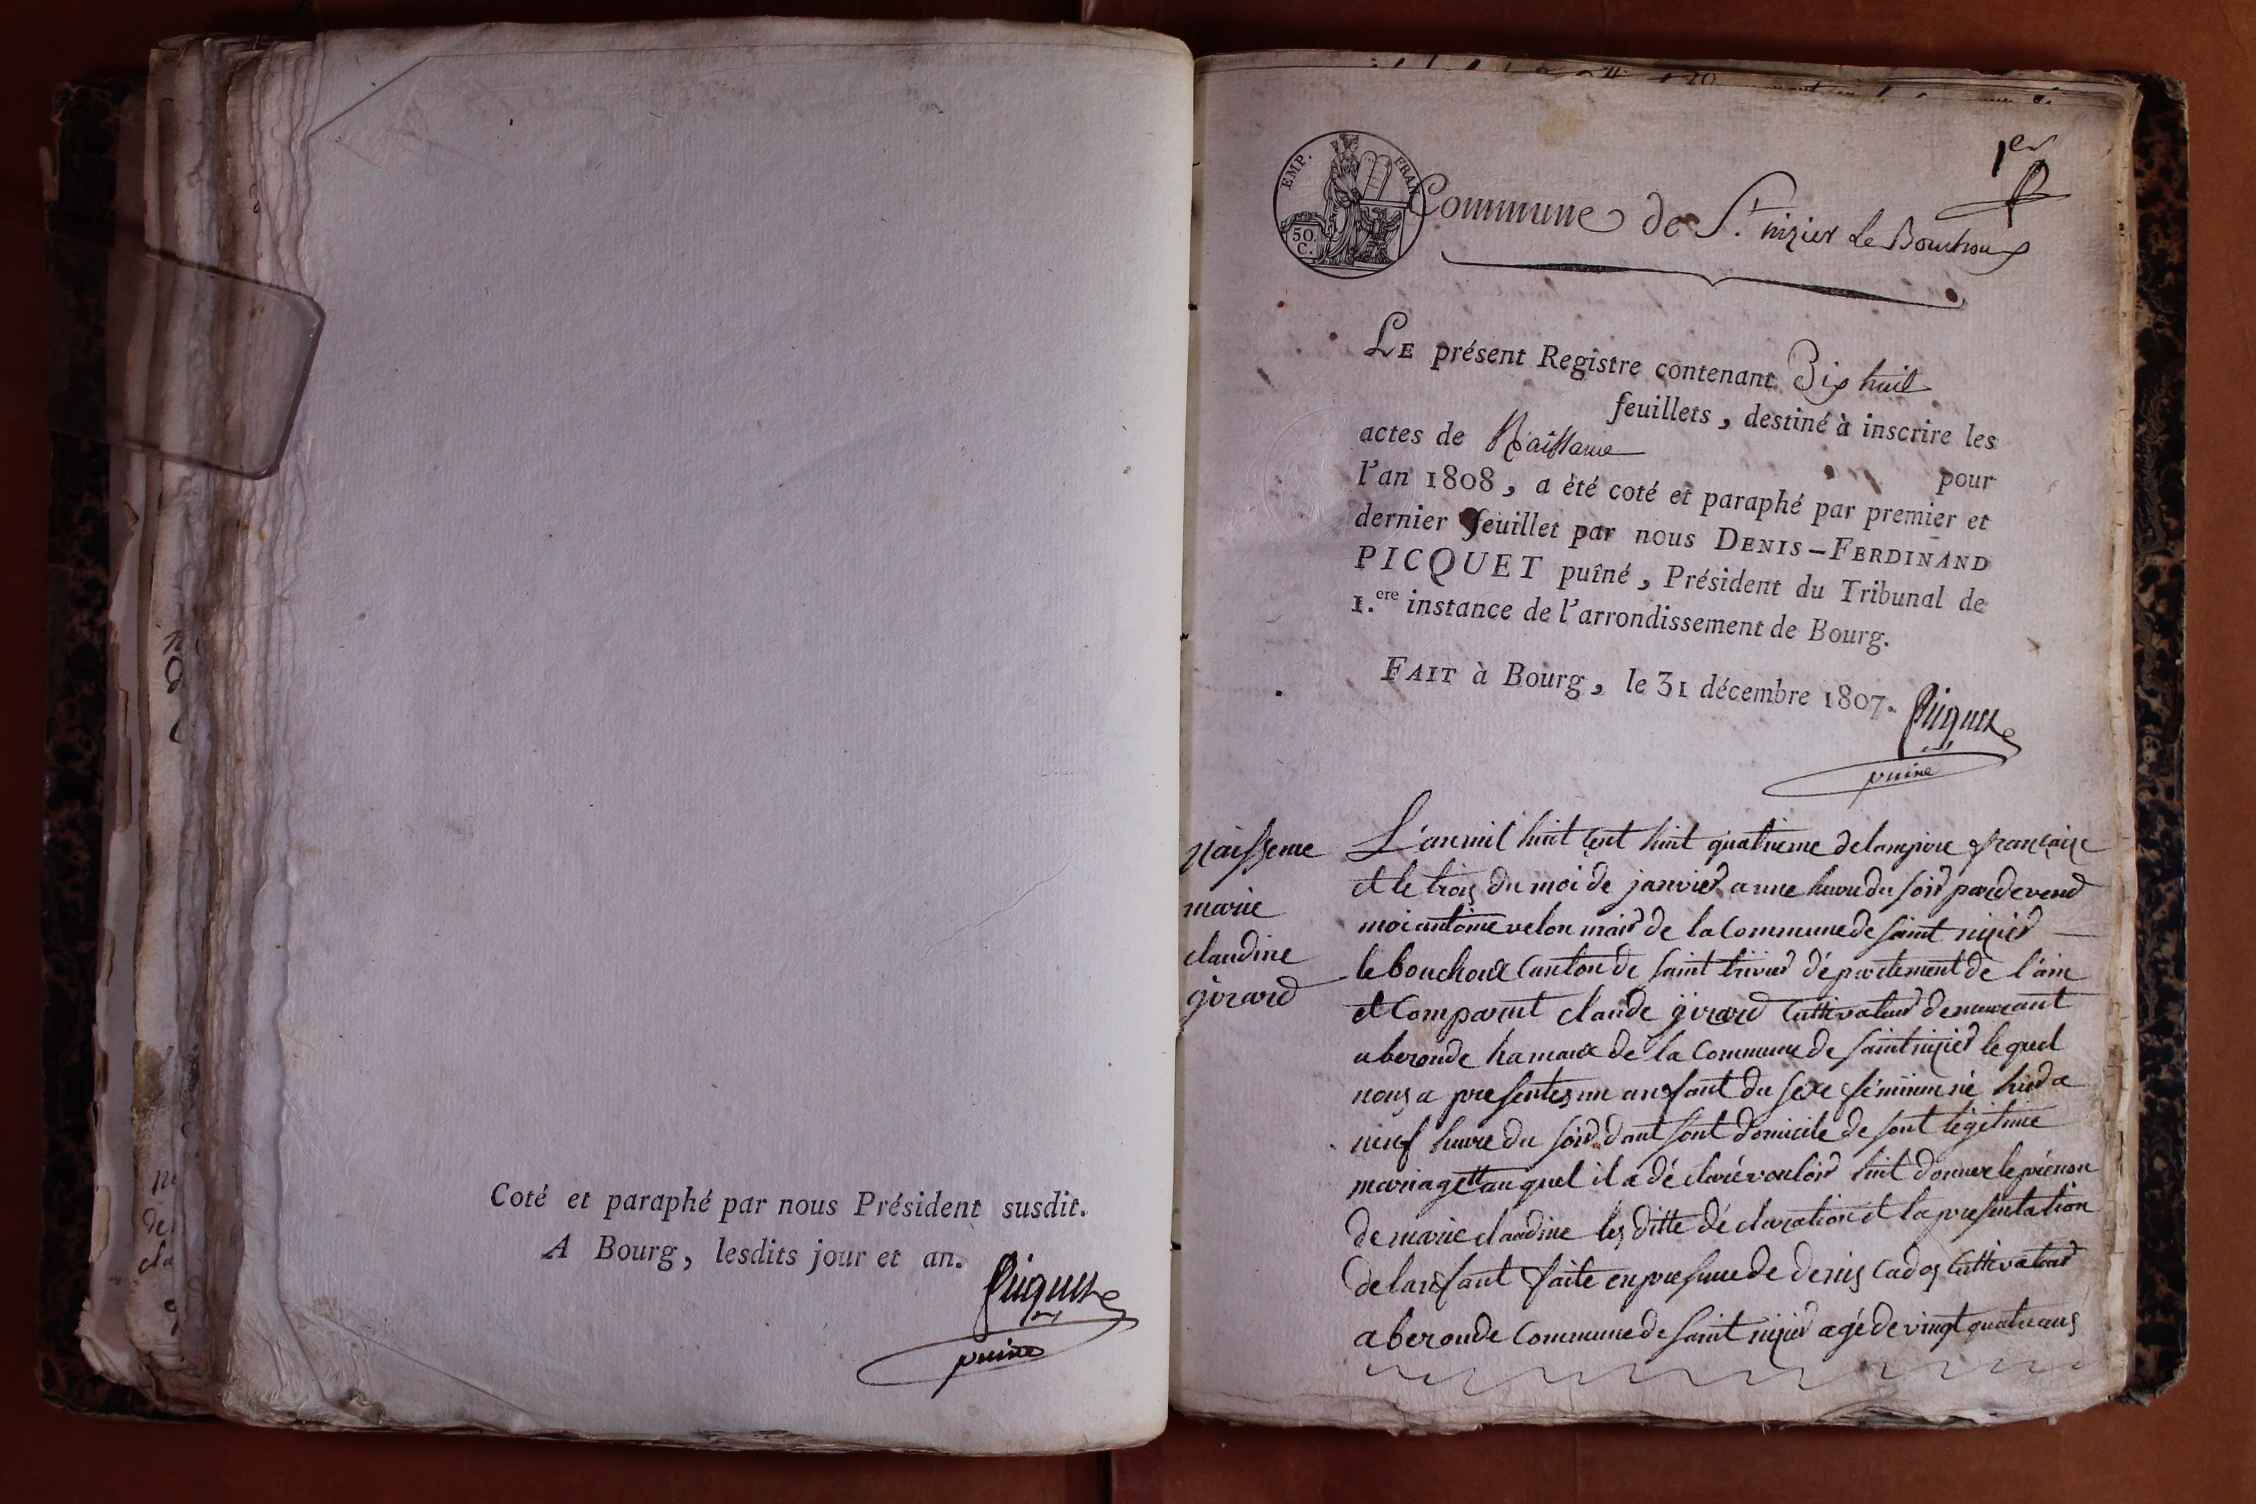 Coté et paraphé par nous Président susdit.
A Bourg, lesdits jour et an.
Picquet
puiné
1er
EMP. FRAN.
50 C.
Commune de St. nizier Le Bouchoux
LE présent Registre contenant Dix huit
feuillets, destiné à inscrire les
actes de Naissance
pour
l'an 1808, a été coté et paraphé par premier et
dernier feuillet par nous DENIS-FERDINAND
PICQUET puîné, Président du Tribunal de
1.ere instance de l'arrondissement de Bourg.
FAIT à Bourg, le 31 décembre 1807.
Picquet
puiné
Naissence
marie
claudine
girard
L'an mil huit cent huit quatrieme de lampire française
et le trois du moi de janvier a une heure du soir pardevend
moi antoine velon mair de la Commune de saint nizier
le bouchoux Canton de saint trivier département de l'ain
et Comparut claude girard Cultivateur demeurant
a beronde hamaux de la Commune de saint nizier le quel
nous a presentes un anfant du sexe féminin né hier a
neuf heure du soir dont sont domicile de sont légitime
mariage et auquel il a déclaré vouloir luit donner le prénon
de marie claudine les ditte déclaration et la presentation
de lanfant faite en presence de denis Cados Cultivateur
a beronde Commune de saint nizier agé de vingt quatre ans